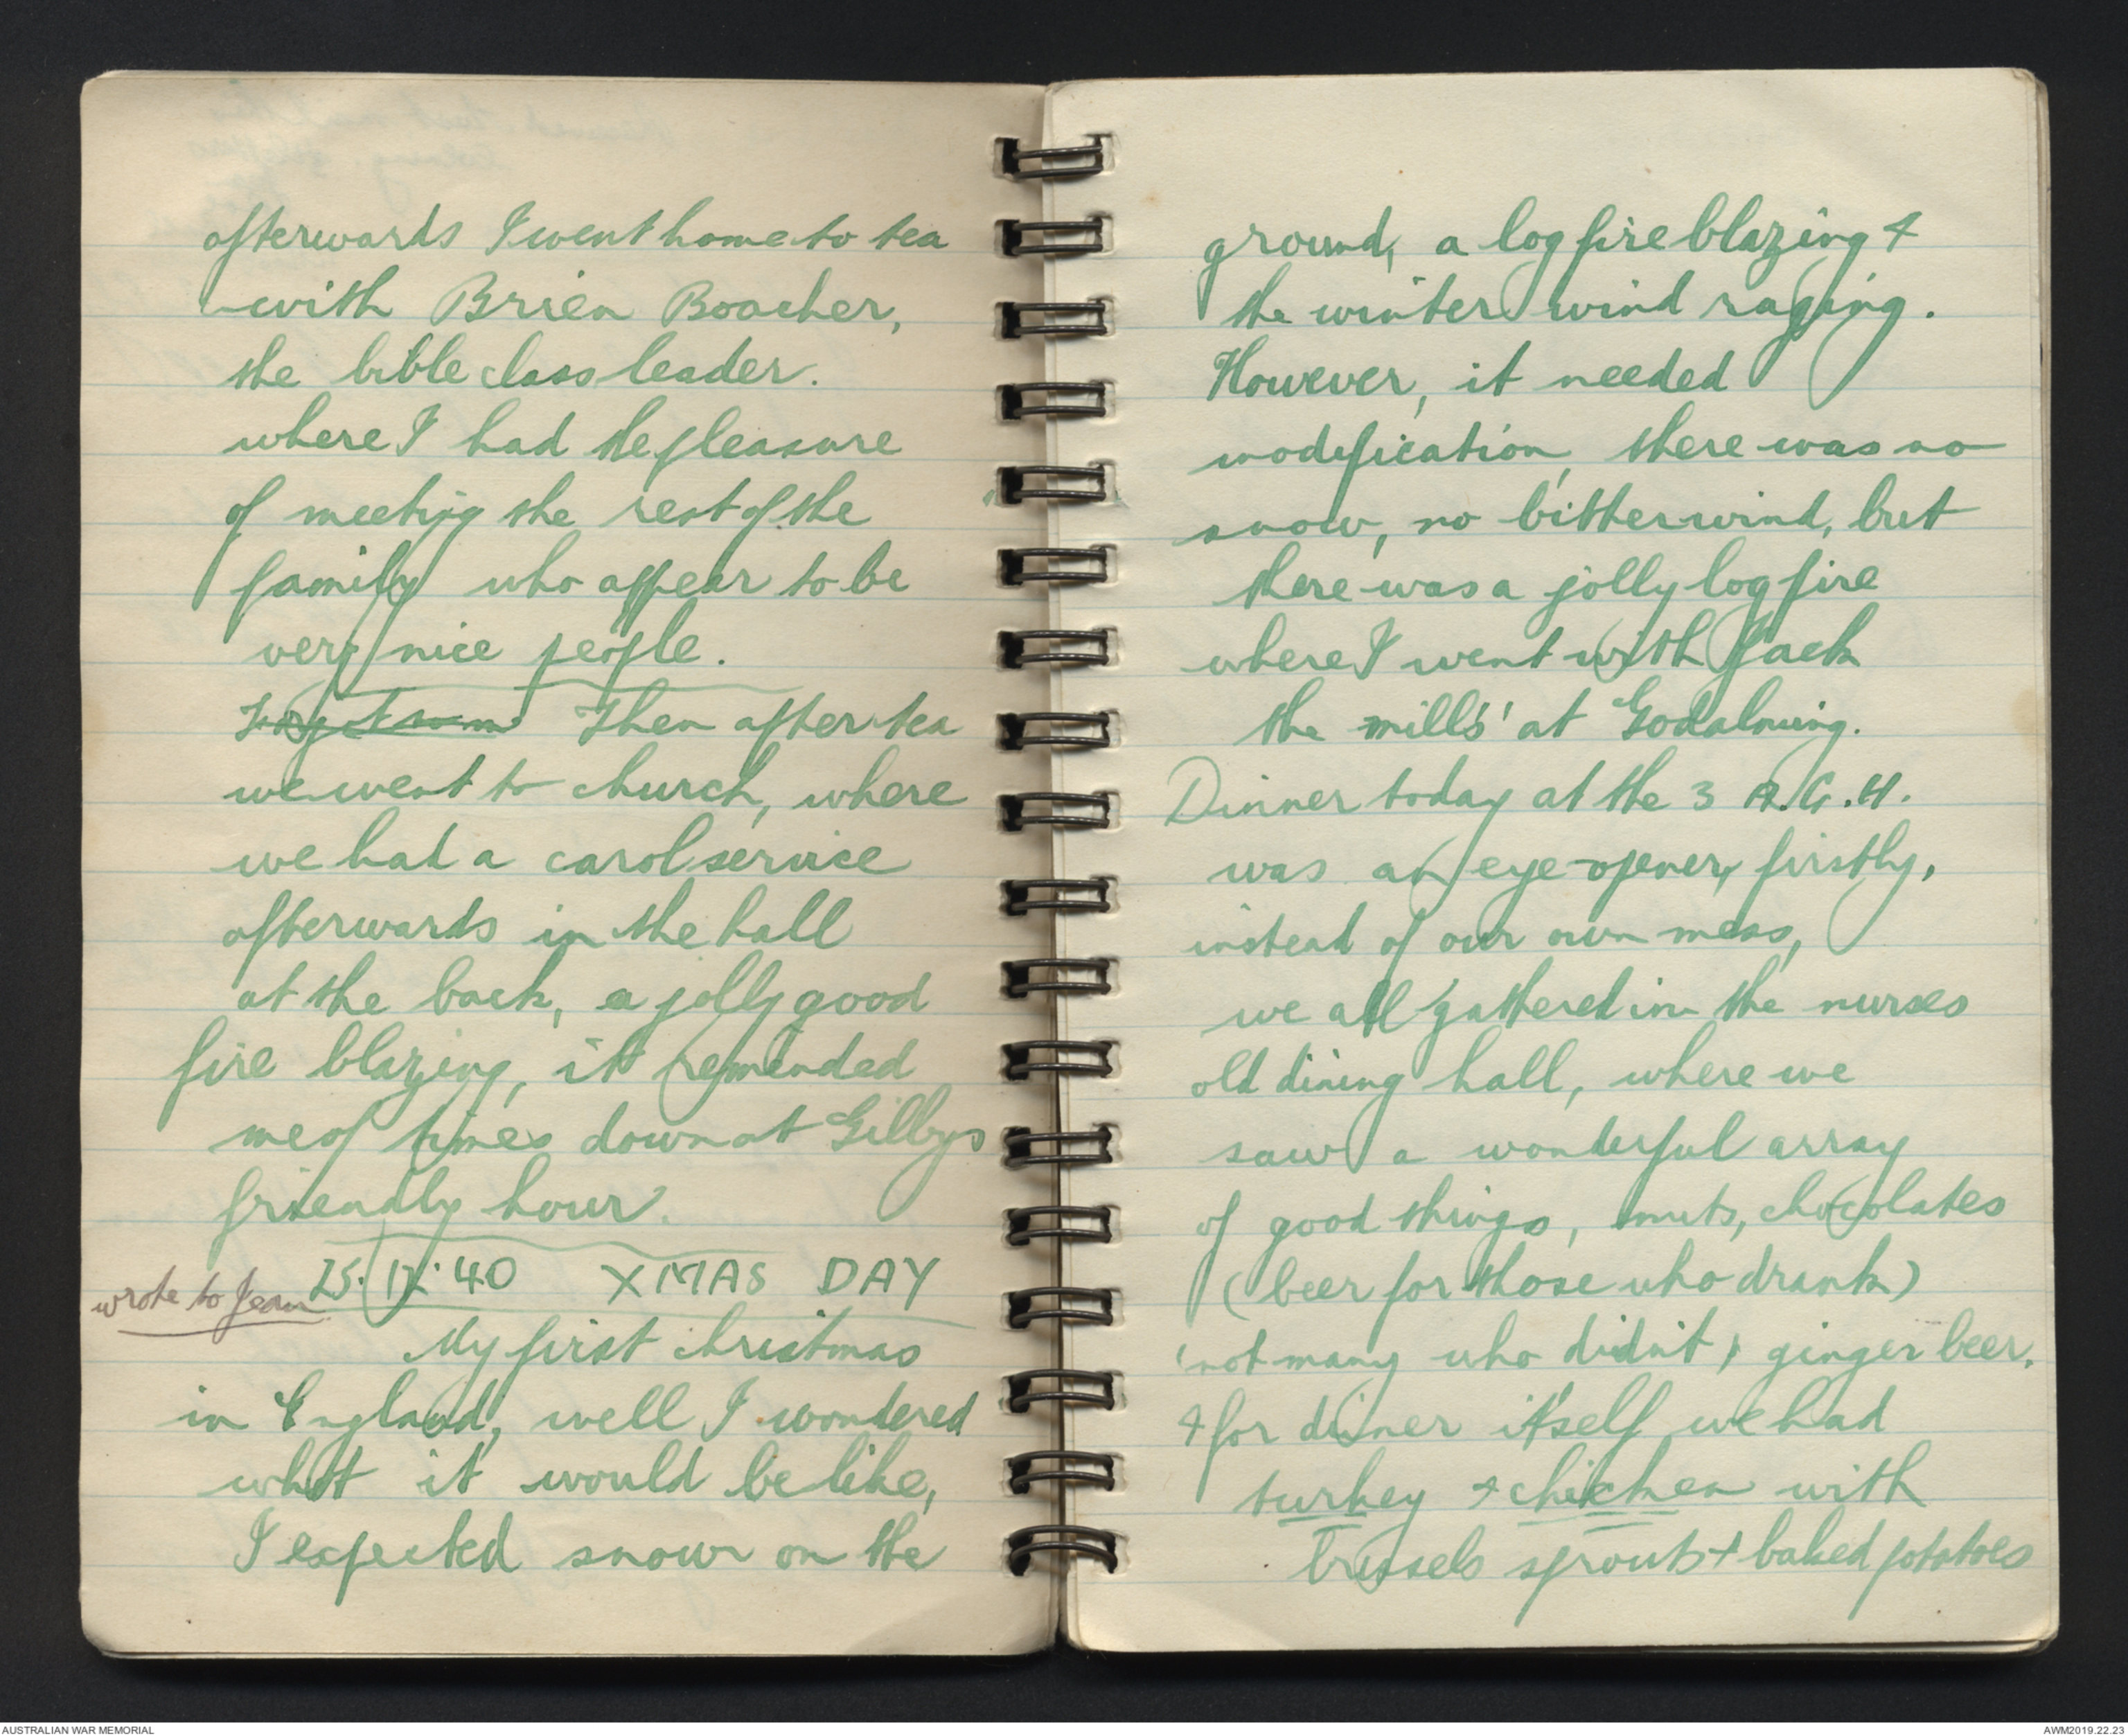 afterwards I went home to tea
with Brien Boacher,
the bible class leader.
where I had the pleasure
of meeting the rest of the
family who appear to be
very nice people.
Then after tea
we went to church, where
we had a carol service
afterwards in the hall
at the back, a jolly good
fire blazing, it remended
me of times down at Gillbys
friendly hour.
wrote to Jean
25.12.40 XMAS DAY
My first christmas
in England, well I wondered
what it would be like,
I expected snow on the
ground, a log fire blazing &
the winter wind raging.
However, it needed
modification, there was no
snow, no bitter wind, but
there was a jolly log fire
where I went with Jack
the mills' at Godalming.
Dinner today at the 3 A.G.H.
was an eye-opener, firstly,
instead of our own mess,
we all gathered in the nurses
old dining hall, where we
saw a wonderful array
of good things, nuts, chocolates
(beer for those who drank)
(not many who didn't) ginger beer,
& for dinner itself we had
turkey & chicken with
brussels sprouts + baked potatoes
AUSTRALIAN WAR MEMORIAL
AWM2019.22.23